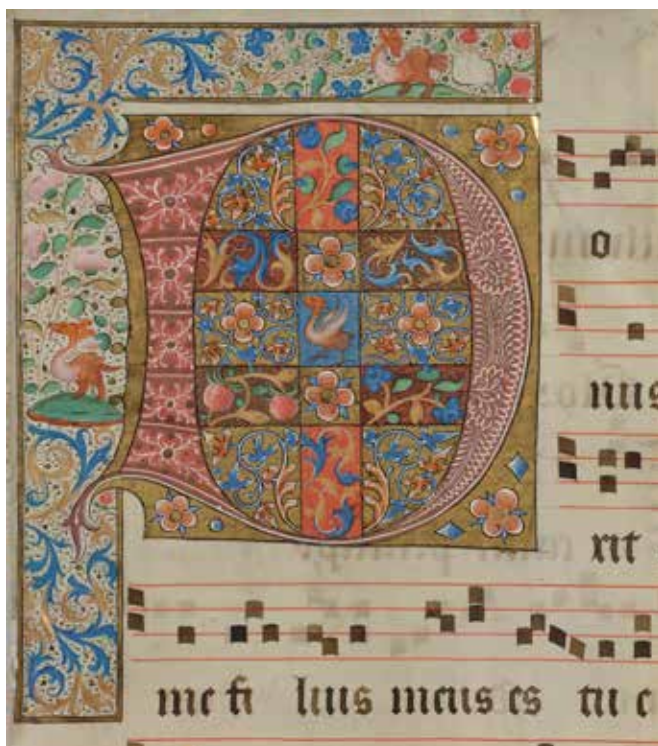 D o
nus
xit
me fi lius meus es tu e